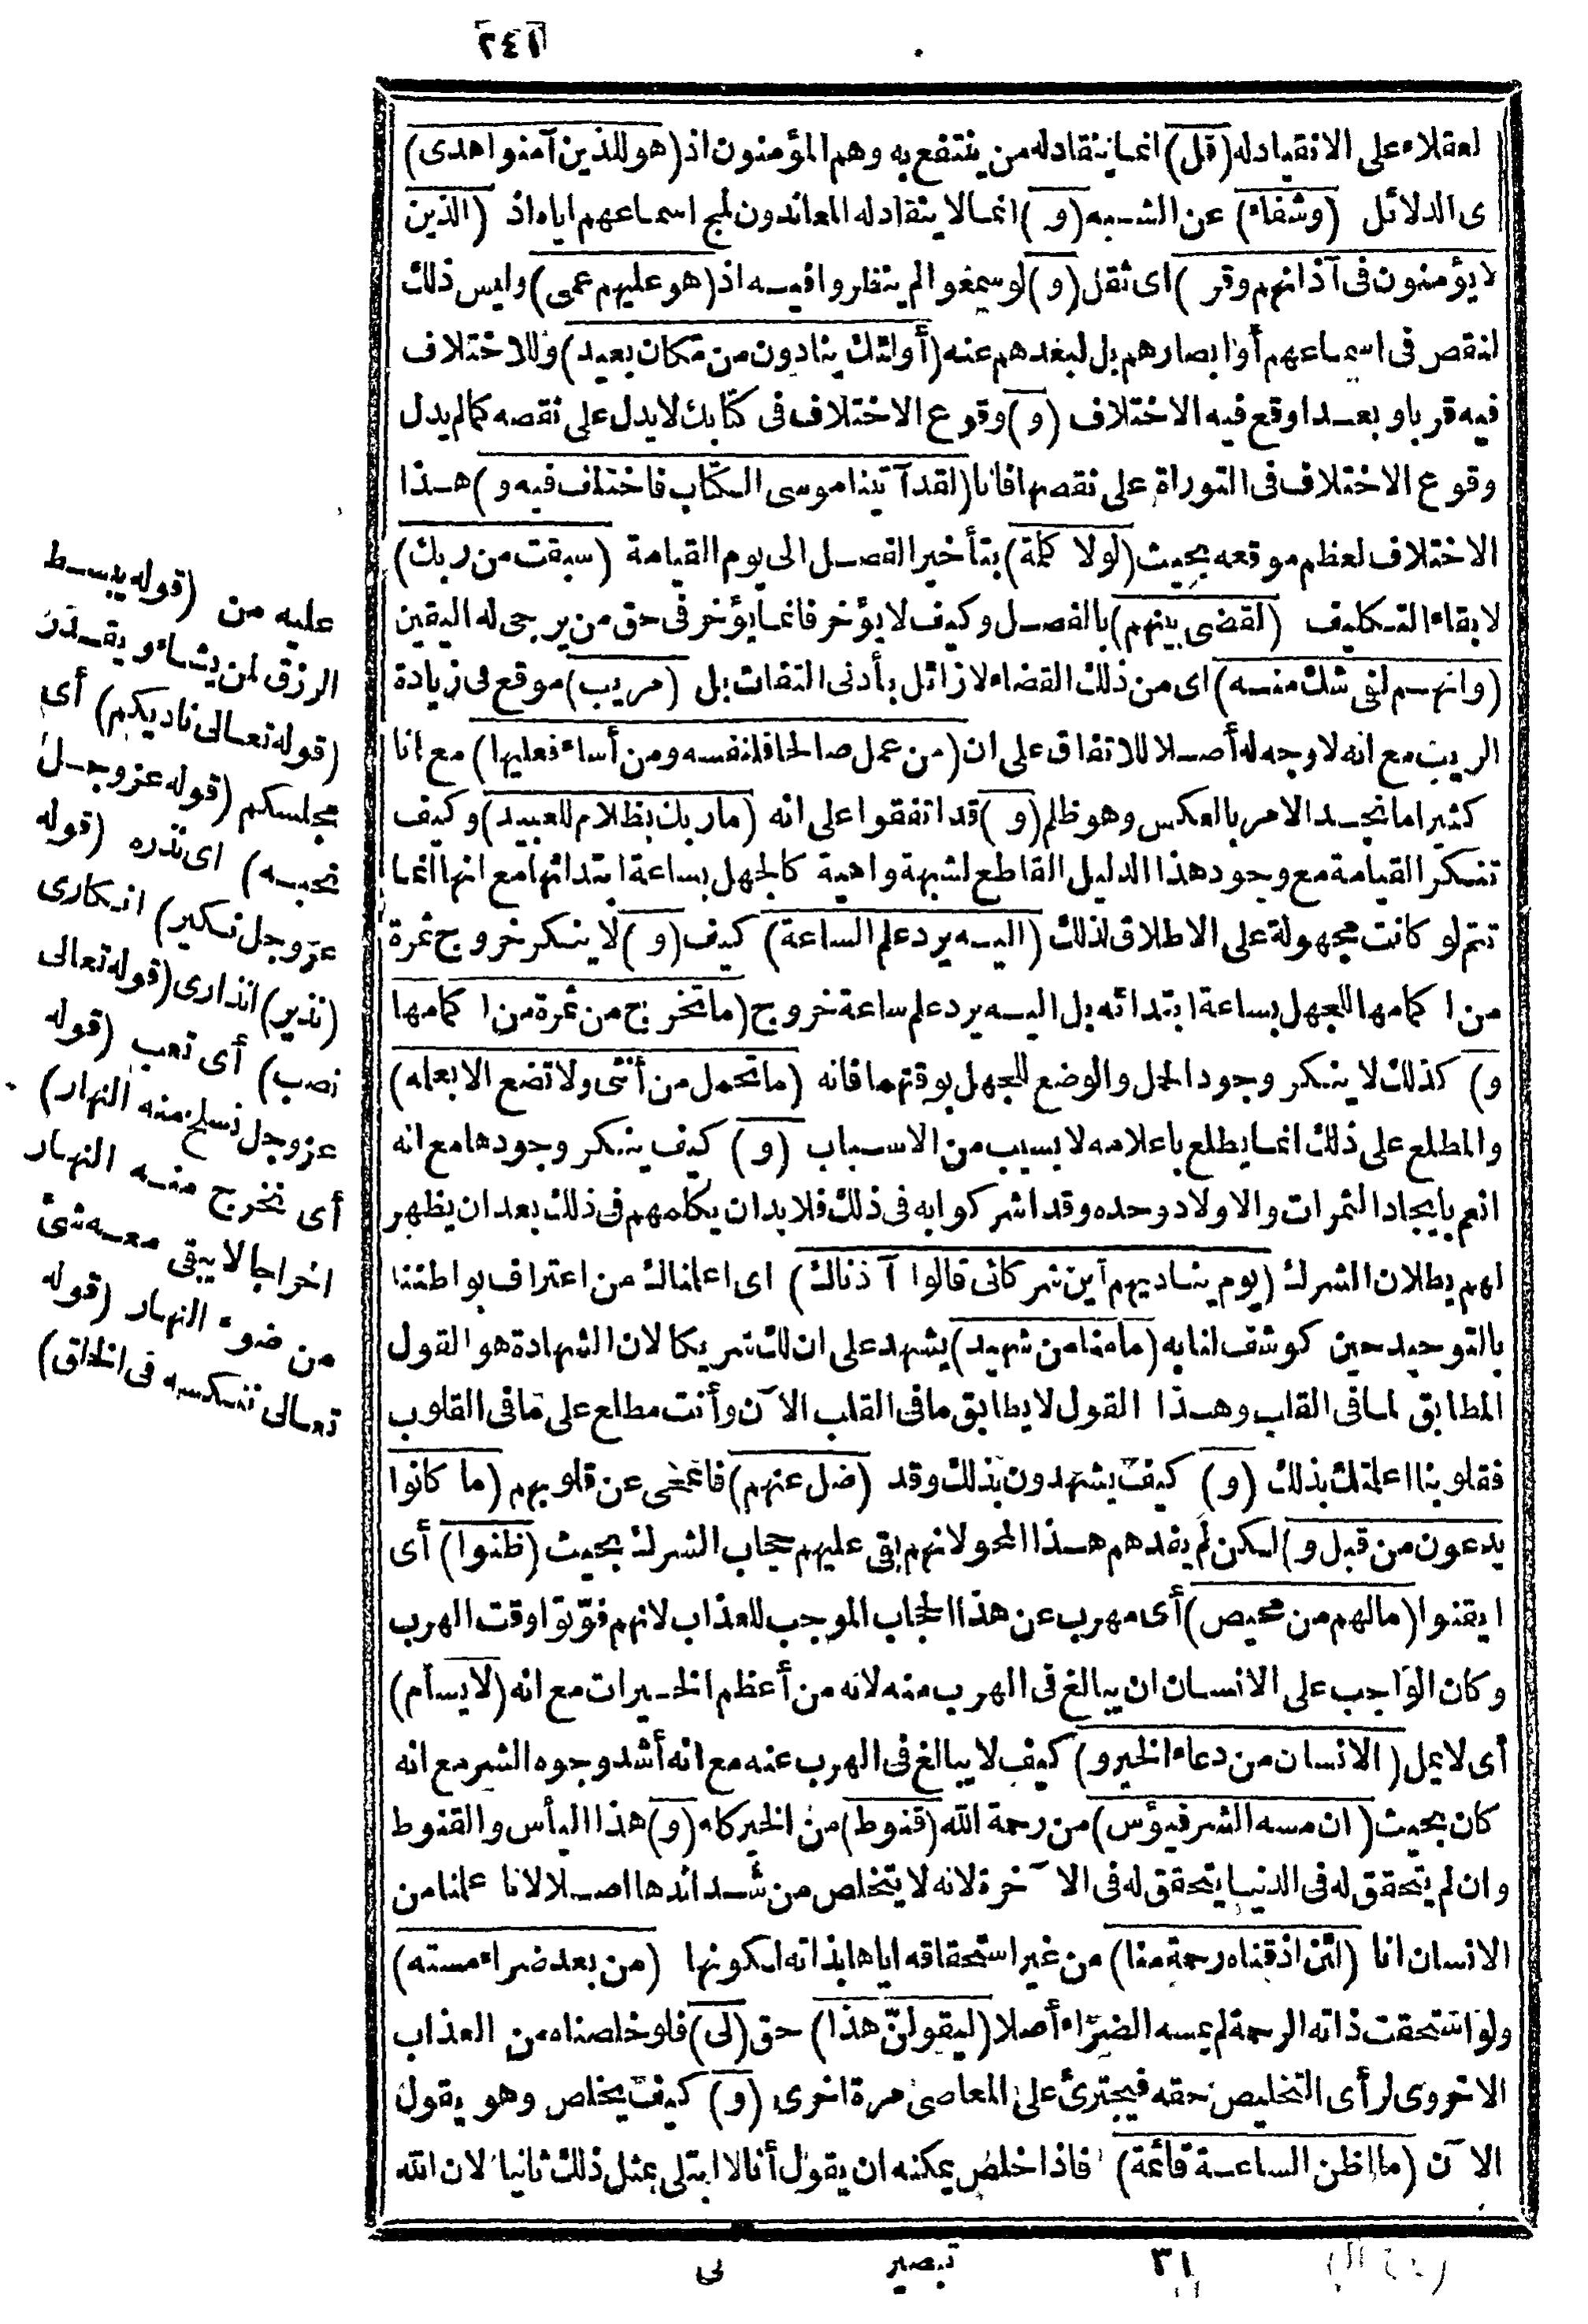 ٢٤١
لعقلاء على الانقياد له (قل) انما ينقاد له من ينتفع به وهم المؤمنون اذ (هو للذين آمنوا هدى)
ى الدلائل (وشفاء) عن الشبه (و) انما لا ينقاد له المعاندون لمج اسماعهم اياه اذ (الذين
لا يؤمنون فى آذانهم وقر) اى ثقل (و) لو سمعوا لم ينظروا فيه اذ (هو عليهم عمى) وليس ذلك
لنقص فى اسماعهم أو ابصارهم بل لبعدهم عنه (أولئك ينادون من مكان بعيد) وللاختلاف
فيه قربا وبعدا وقع فيه الاختلاف (و) وقوع الاختلاف فى كتابك لا يدل على نقصه كما لم يدل
وقوع الاختلاف فى التوراة على نقصها فانا (لقد آتينا موسى الكتاب فاختلف فيه و) هذا
الاختلاف لعظم موقعه بحيث (لولا كلمة) بتأخير الفصل الى يوم القيامة (سبقت من ربك)
لابقاء التكليف (لقضى بينهم) بالفصل وكيف لا يؤخر فانما يؤخر فى حق من يرجى له اليقين
(وانهم لفى شك منه) اى من ذلك القضاء لا زائل بأدنى التفات بل (مريب) موقع فى زيادة
الريب مع انه لا وجه له أصلا للاتفاق على ان (من عمل صالحا فلنفسه ومن أساء فعليها) مع انا
كثيرا ما نجد الامر بالعكس وهو ظلم (و) قد اتفقوا على انه (ما ربك بظلام للعبيد) وكيف
تنكر القيامة مع وجود هذا الدليل القاطع لشبهة واهية كالجهل بساعة ابتدائها مع انها انما
تتم لو كانت مجهولة على الاطلاق لذلك (اليه يرد علم الساعة) كيف (و) لا ينكر خروج ثمرة
من اكمامها للجهل بساعة ابتدائه بل اليه يرد علم ساعة خروج (ما تخرج من ثمرة من اكمامها
و) كذلك لا ينكر وجود الحمل والوضع للجهل بوقتهما فانه (ما تحمل من أنثى ولا تضع الا بعلمه)
والمطلع على ذلك انما يطلع باعلامه لا بسبب من الاسباب (و) كيف ينكر وجودها مع انه
انعم بايجاد الثمرات والاولاد وحده وقد اشركوا به فى ذلك فلا بد ان يكلمهم فى ذلك بعد ان يظهر
لهم بطلان الشرك (يوم يناديهم أين شركائى قالوا آذناك) اى اعلمناك من اعتراف بواطننا
بالتوحيد حين كوشف لنا به (ما منا من شهيد) يشهد على ان لك شريكا لان الشهادة هو القول
المطابق لما فى القلب وهذا القول لا يطابق ما فى القلب الآن وأنت مطلع على ما فى القلوب
فقلوبنا اعلمتك بذلك (و) كيف يشهدون بذلك وقد (ضل عنهم) فانمحى عن قلوبهم (ما كانوا
يدعون من قبل و) لكن لم يفدهم هذا المحو لانهم بقى عليهم حجاب الشرك بحيث (ظنوا) أى
ايقنوا (ما لهم من محيص) أى مهرب عن هذا الحجاب الموجب للعذاب لانهم فوّتوا وقت الهرب
وكان الواجب على الانسان ان يبالغ فى الهرب منه لانه من أعظم الخيرات مع انه (لا يسأم)
أى لا يمل (الانسان من دعاء الخير و) كيف لا يبالغ فى الهرب عنه مع انه أشد وجوه الشر مع انه
كان بحيث (ان مسه الشر فيؤس) من رحمة الله (قنوط) من الخير كله (و) هذا اليأس والقنوط
وان لم يتحقق له فى الدنيا يتحقق له فى الآخرة لانه لا يتخلص من شدائدها اصلا لانا علمنا من
الانسان انا (لئن اذقناه رحمة منا) من غير استحقاقه اياها بذاته لكونها (من بعد ضراء مسته)
ولو استحقت ذاته الرحمة لم يمسه الضرّاء أصلا (ليقولنّ هذا) حق (لى) فلو خلصناه من العذاب
الاخروى لرأى التخليص حقه فيجترئ على المعاصى مرة اخرى (و) كيف يخلص وهو يقول
الآن (ما اظن الساعة قائمة) فاذا خلص يمكنه ان يقول أنا لا ابتلى بمثل ذلك ثانيا لان الله
عليه من (قوله يبسط
الرزق لمن يشاء ويقدر
(قوله تعالى ناديكم) أى
مجلسكم (قوله عز وجل
نحبه) اى نذره (قوله
عزّ وجل نكير) انكارى
(نذير) انذارى (قوله تعالى
نصب) أى تعب (قوله
عز وجل نسلخ منه النهار)
أى نخرج منه النهار
اخراجا لا يبقى معه شئ
من ضوء النهار (قوله
تعالى ننكسه فى الخلق)
٣١ تبصير نى